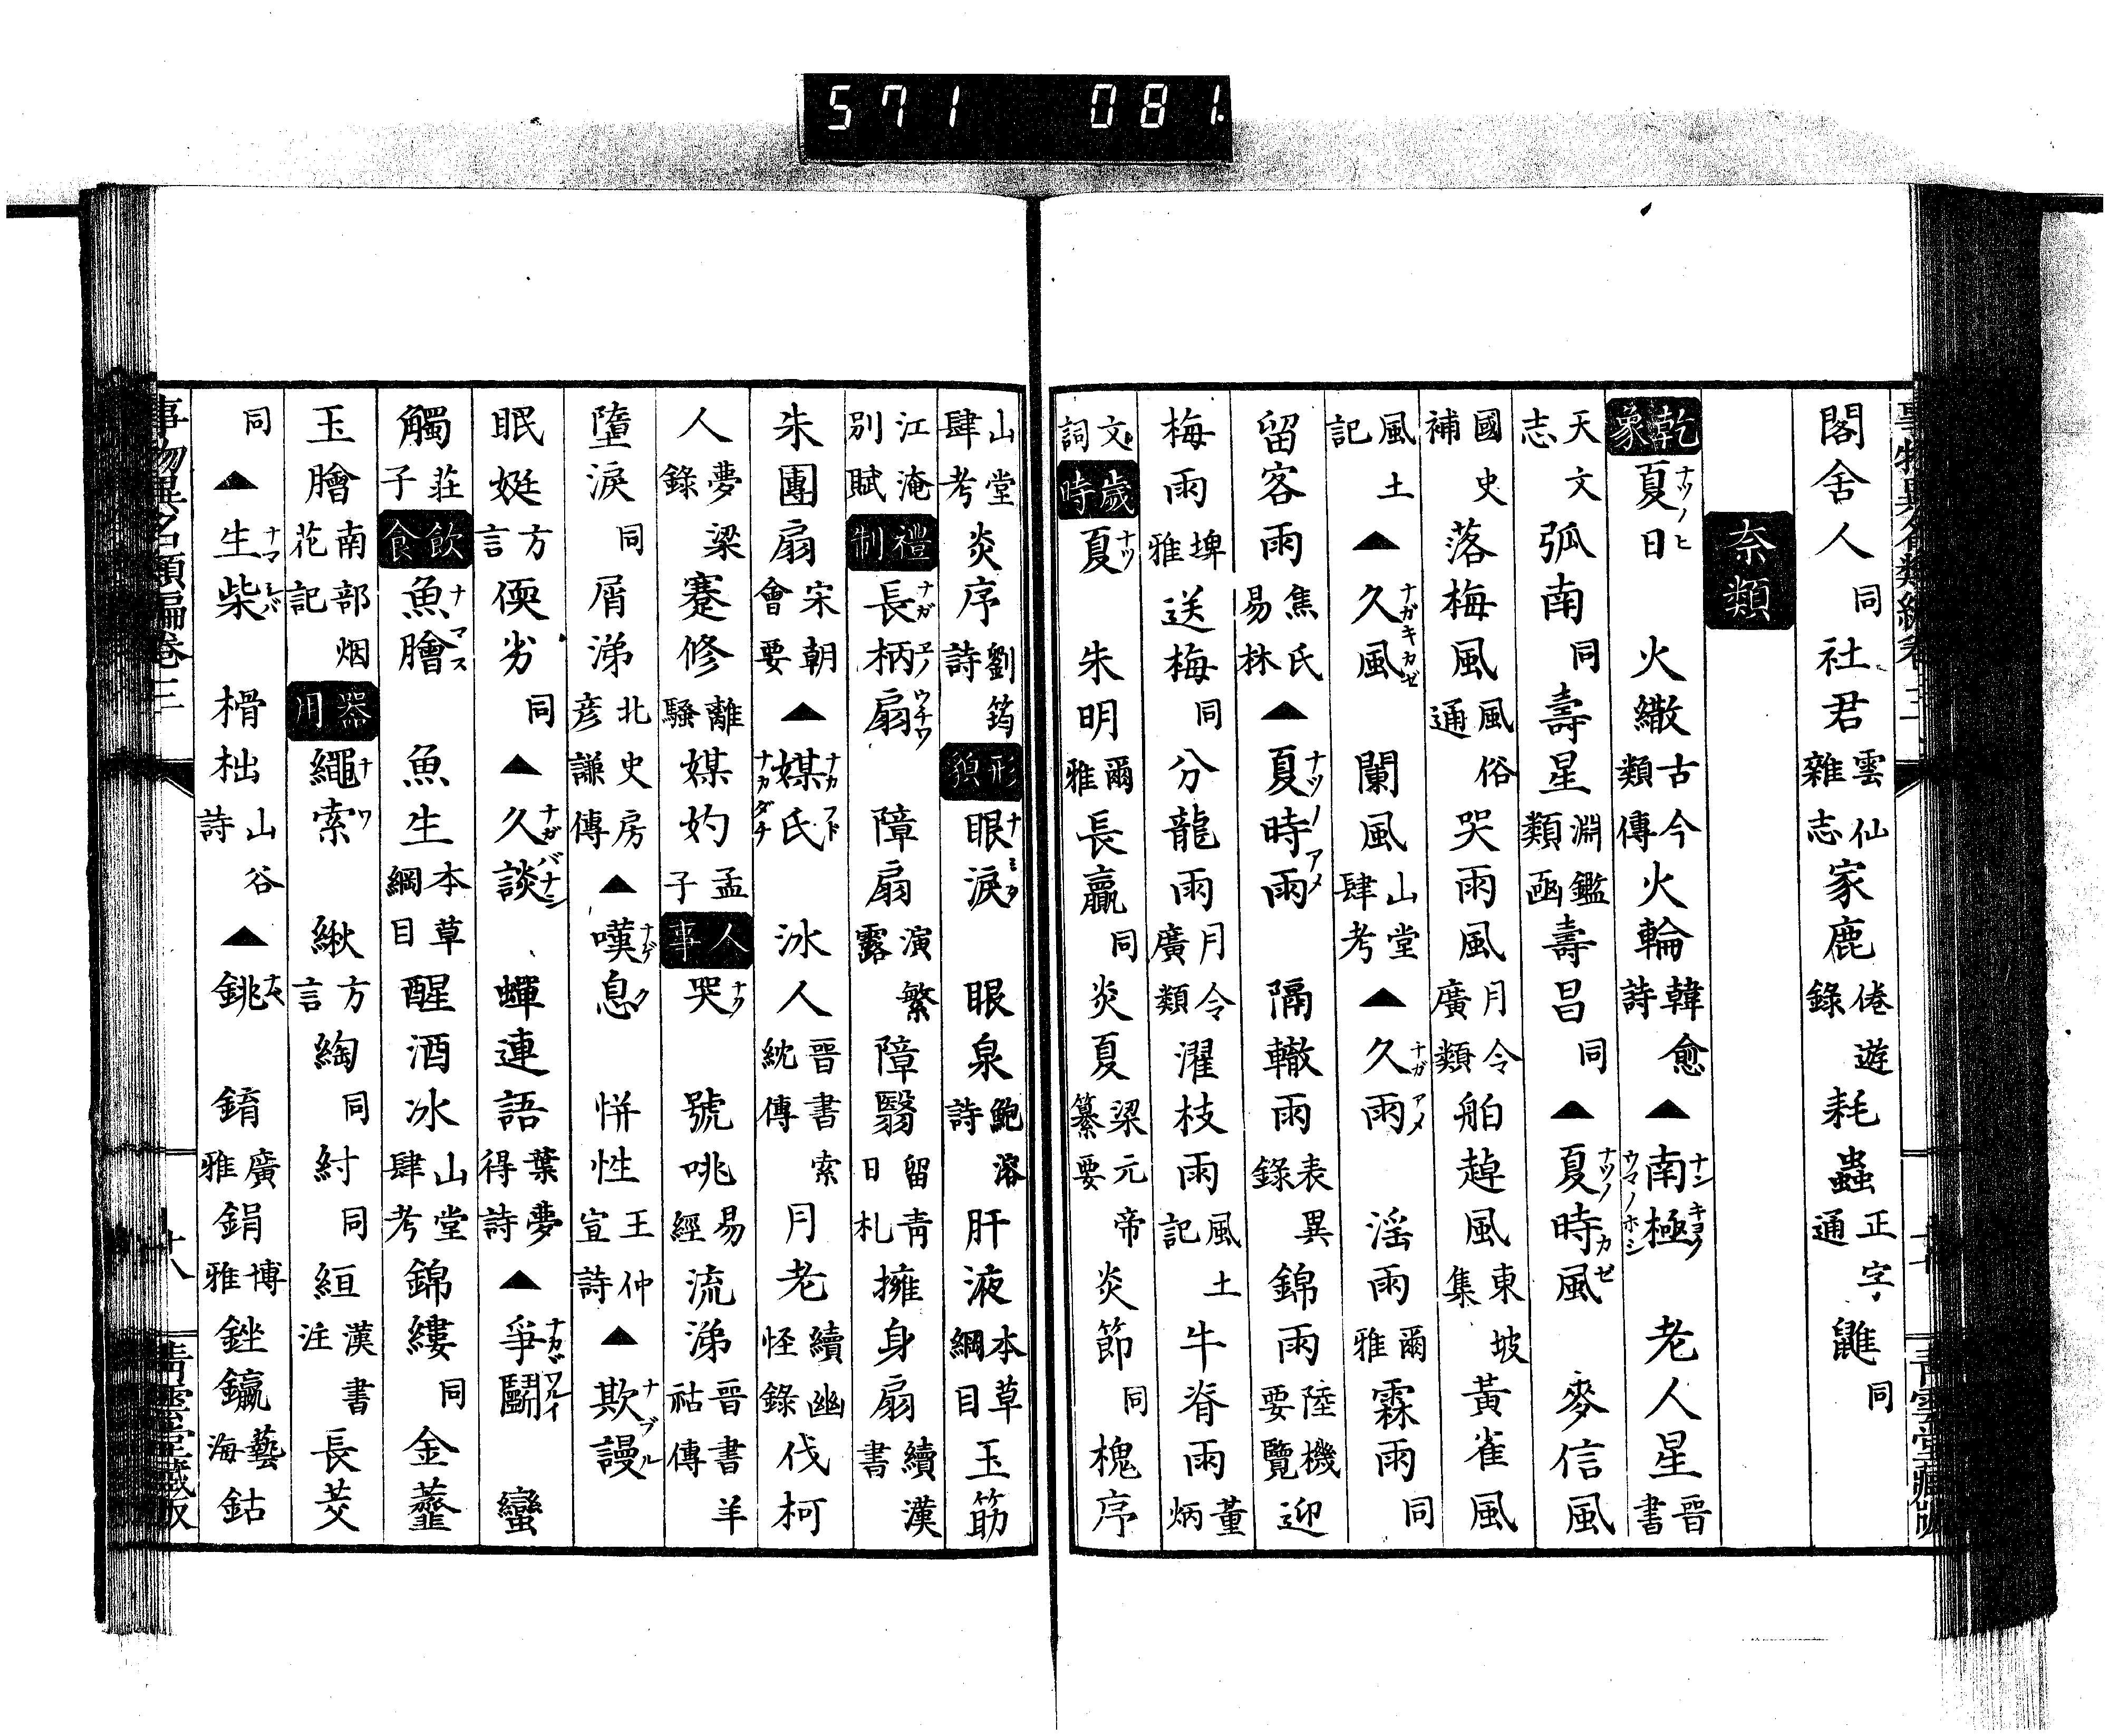 571 081
閣舍人同社君雲仙雜志家鹿倦遊錄耗蟲正字通鼪同
奈類
乾象夏日ナツノヒ火繖古今類傳火輪韓愈詩▲南極ナンキヨクウマノホシ老人星晉書
天文志弧南同壽星淵鑑類函壽昌同▲夏時風ナツノカゼ麥信風
國史補落梅風風俗通哭雨風月令廣類舶趠風東坡集黃雀風
風土記▲久風ナガキカゼ闌風山堂肆考▲久雨ナガアメ淫雨爾雅霖雨同
留客雨焦氏易林▲夏時雨ナツノアメ隔轍雨表異錄錦雨陸機要覽迎
梅雨埤雅送梅同分龍雨月令廣類濯枝雨風土記牛脊雨董炳
文詞歲時夏ナツ朱明爾雅長贏同炎夏梁元帝纂要炎節同槐序
山堂肆考炎序劉筠詩形貌眼淚ナミタ眼泉鮑溶詩肝液本草綱目玉筯
江淹別賦禮制長柄扇ナガヱノウチワ障扇演繁露障翳留青日札擁身扇續漢書
朱團扇宋朝會要▲媒氏ナカフドナカダチ冰人晉書索紞傳月老續幽怪錄伐柯
人夢梁錄蹇修離騷媒妁孟子人事哭ナク號咷易經流涕晉書羊祜傳
墮淚同屑涕北史房彥謙傳▲嘆息ナゲク恲性王仲宣詩▲欺謾ナブル
眠娗方言偄劣同▲久談ナガバナシ蟬連語葉夢得詩▲爭鬪ナカヾワルイ蠻
觸莊子飲食魚膾ナマス魚生本草綱目醒酒冰山堂肆考錦縷同金虀
玉膾南部烟花記器用繩索ナワ緧方言綯同紂同絙漢書注長茭
同▲生柴ナマシバ榾柮山谷詩▲銚ナベ錥廣雅鋗博雅銼鑪藝海鈷